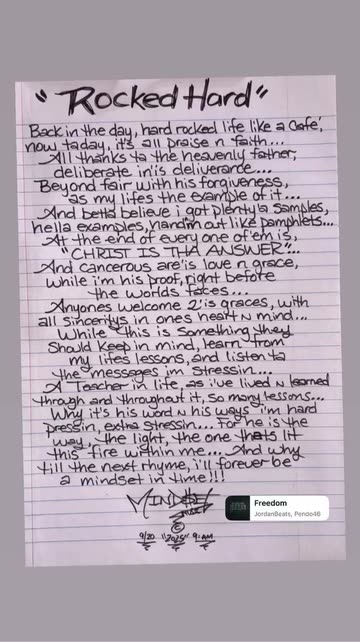 "Rocked Hard"
Back in the day, hard rocked life like a Cafe',
now taday, it's all praise n faith...
All thanks ta the heavenly father,
deliberate in'is deliverance...
Beyond fair with his forgiveness,
as my lifes the example of it...
And betta believe i got plenty'a samples,
hella examples, handin out like pamphlets...
At the end of every one of'em is,
"CHRIST IS THA ANSWER"...
And cancerous are'is love n grace,
while i'm his proof, right before
the worlds faces...
Anyones welcome 2'is graces, with
all sincerity's in ones heart N mind...
While this is something they
Should keep in mind, learn from
my lifes lesson's, and listen ta
the messages im Stressin...
A Teacher in life, as i've lived N learned
through and throughout it, so many lessons...
Why it's his word N his ways i'm hard
pressin, extra stressin... For he is the
way, the light, the one thats lit
this fire within me... And why
till the next rhyme, i'll forever be
a mindset in time!!!
©
9/20 "2025" 9:AM
Freedom
JordanBeats, Pendo46